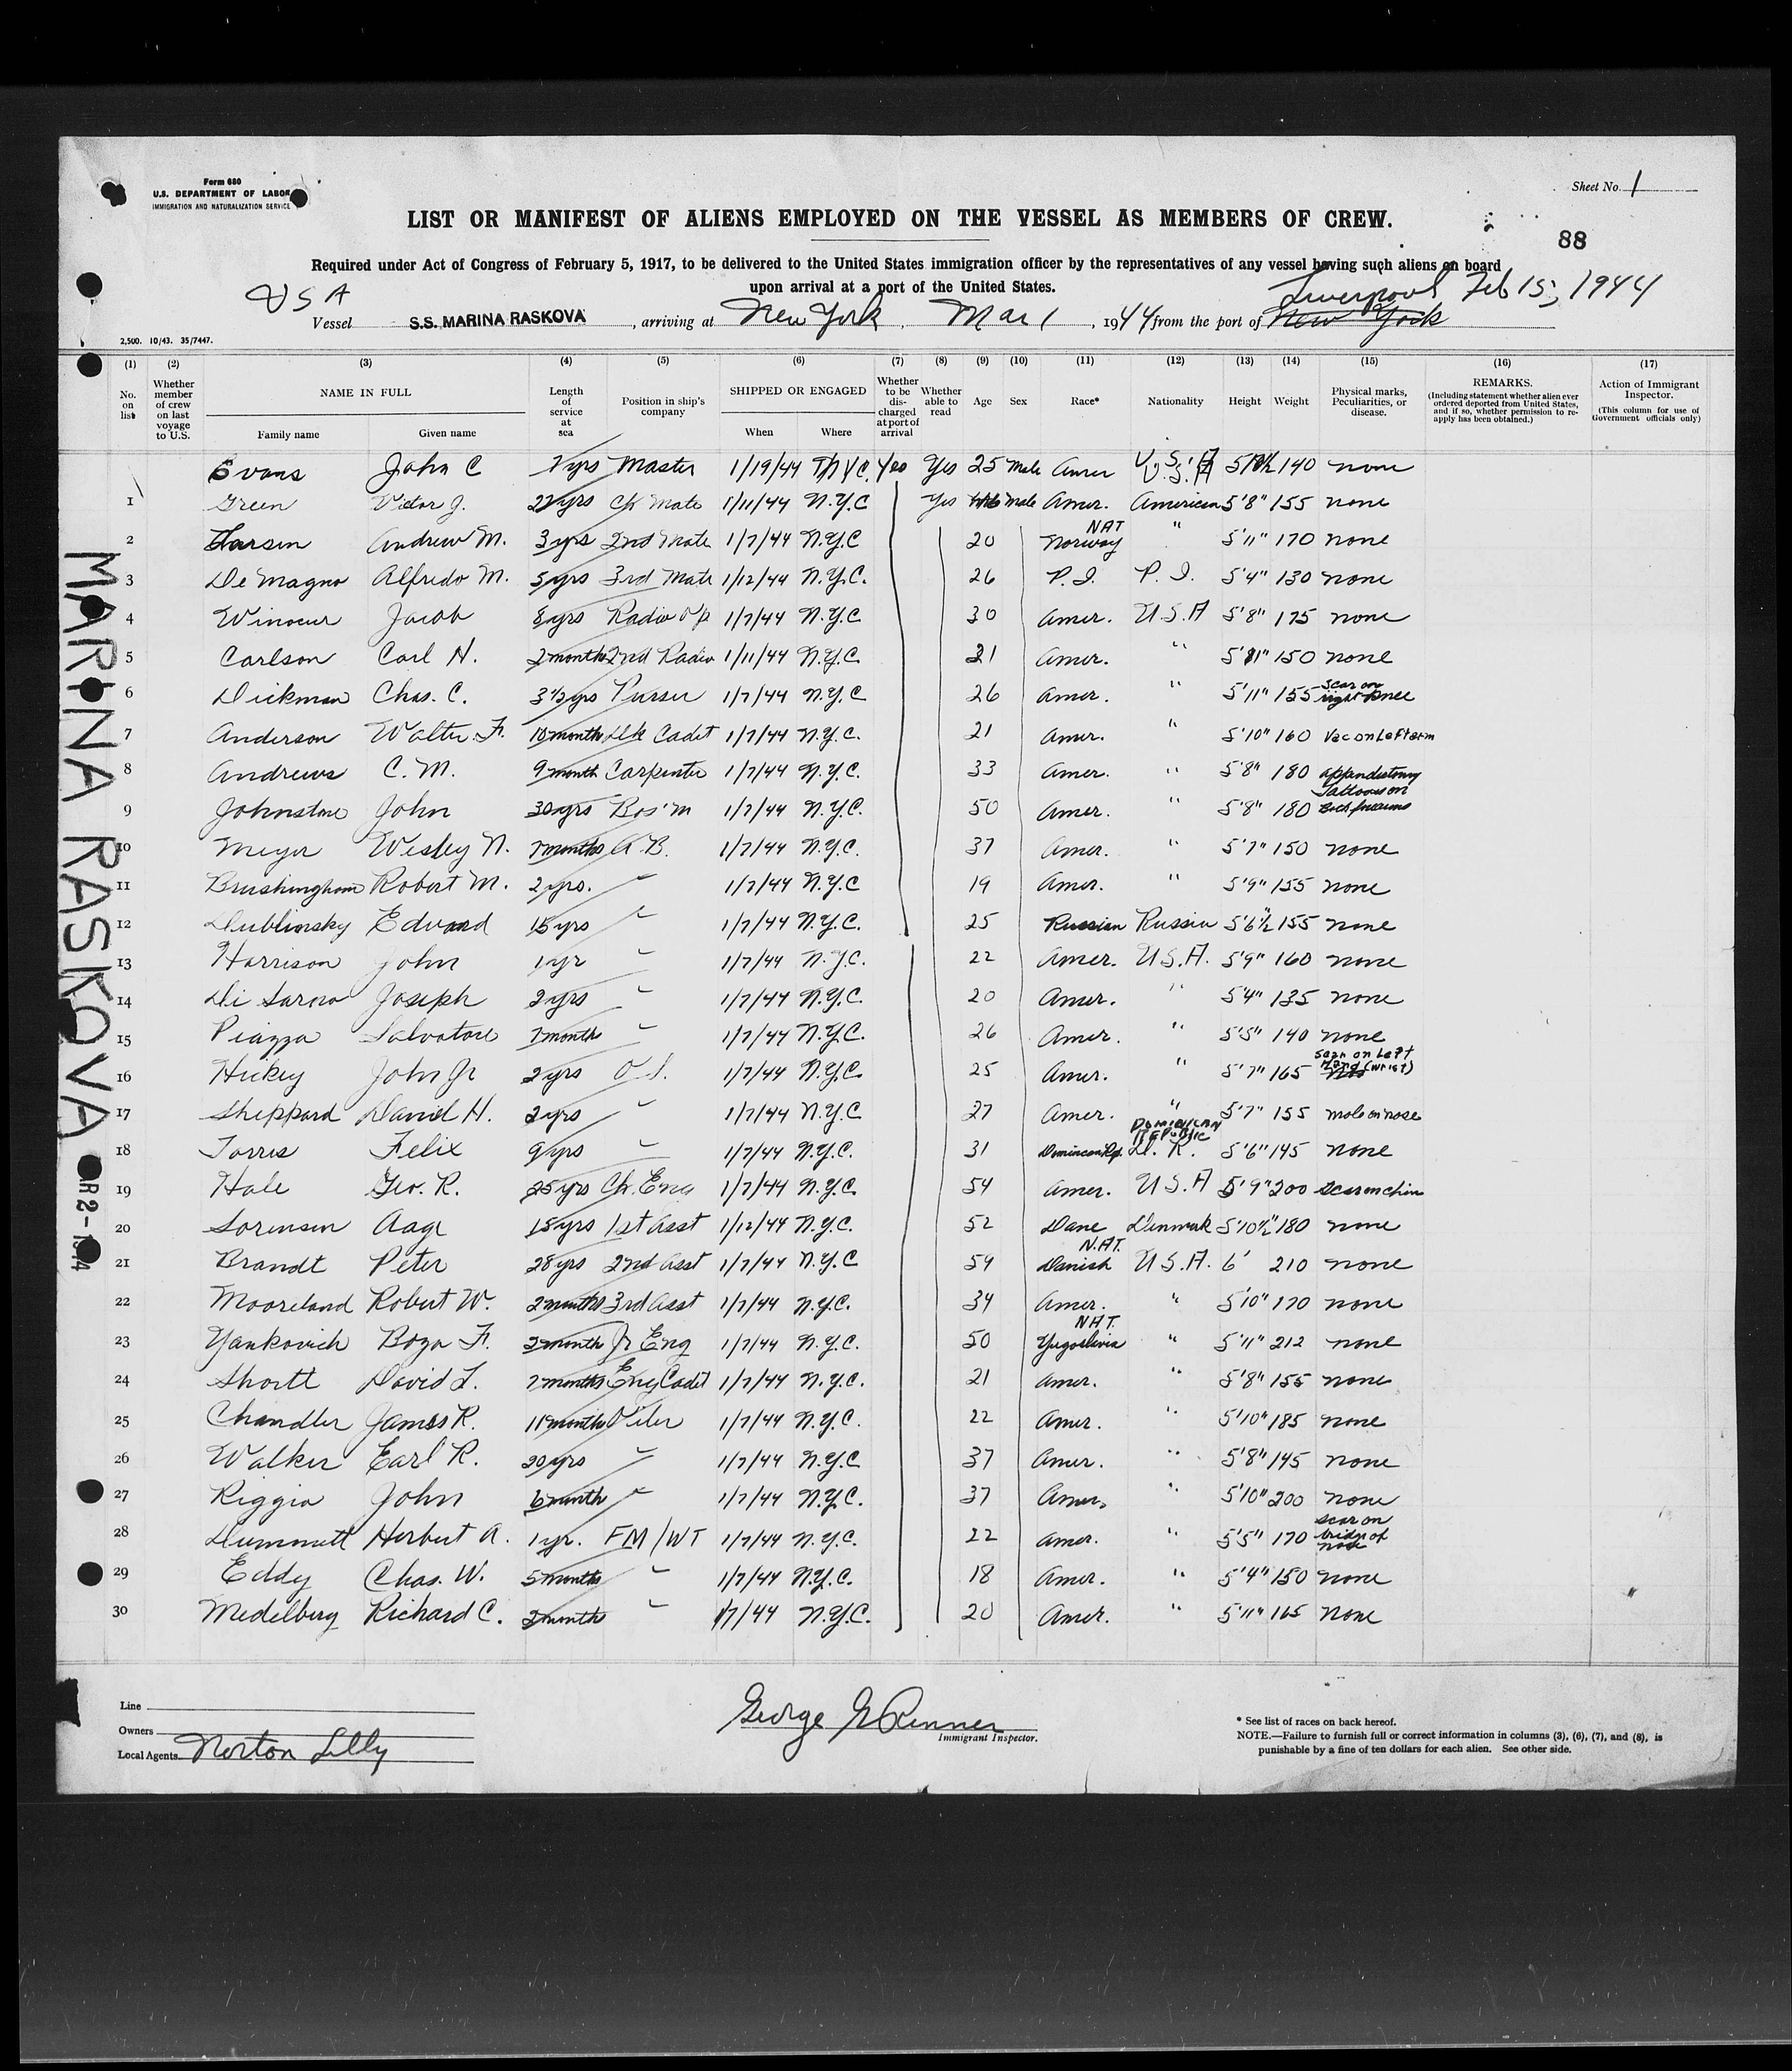 Form 680
U.S. DEPARTMENT OF LABOR
IMMIGRATION AND NATURALIZATION SERVICE
Sheet No. 1
LIST OR MANIFEST OF ALIENS EMPLOYED ON THE VESSEL AS MEMBERS OF CREW.
88
Required under Act of Congress of February 5, 1917, to be delivered to the United States immigration officer by the representatives of any vessel having such aliens on board
upon arrival at a port of the United States.
USA Liverpool Feb 15, 1944
Vessel S.S. MARINA RASKOVA, arriving at New York, Mar 1, 1944 from the port of New York
2,500. 10/43. 35/7447.
(1) (2) (3) (4) (5) (6) (7) (8) (9) (10) (11) (12) (13) (14) (15) (16) (17)
No. on list
Whether member of crew on last voyage to U.S.
NAME IN FULL
Family name Given name
Length of service at sea
Position in ship's company
SHIPPED OR ENGAGED
When Where
Whether to be discharged at port of arrival
Whether able to read
Age
Sex
Race*
Nationality
Height
Weight
Physical marks, Peculiarities, or disease.
REMARKS.
(Including statement whether alien ever ordered deported from United States, and if so, whether permission to reapply has been obtained.)
Action of Immigrant Inspector.
(This column for use of Government officials only)
Evans John C yrs Master 1/19/44 Yes Yes 25 Male Amer U.S.A 140 none
1 Green Victor J. yrs Ch Mate 1/11/44 N.Y.C Yes Male Amer. American 5'8" 155 none
2 Larsen Andrew M. 3 yrs 2nd Mate 1/7/44 N.Y.C 20 NAT Norway " 5'11" 170 none
3 De Magno Alfredo M. 5 yrs 3rd Mate 1/12/44 N.Y.C. 26 P.I. P.I. 5'4" 130 none
4 Winocur Jacob 8 yrs Radio Op 1/7/44 N.Y.C 30 Amer. U.S.A 5'8" 175 none
5 Carlson Carl H. 2 months 2nd Radio 1/11/44 N.Y.C. 21 Amer. " 5'11" 150 none
6 Dickman Chas. C. 3 1/2 yrs Purser 1/7/44 N.Y.C 26 Amer. " 5'11" 155 scar on right knee
7 Anderson Walter F. 10 months Dk Cadet 1/7/44 N.Y.C. 21 Amer. " 5'10" 160 Vac on Left arm
8 Andrews C. M. 9 month Carpenter 1/7/44 N.Y.C. 33 Amer. " 5'8" 180
9 Johnstone John 30 yrs Bos'm 1/7/44 N.Y.C. 50 Amer. " 5'8" 180 Tattoos on both forearms
10 Meyer Wesley N. 7 months A.B. 1/7/44 N.Y.C. 37 Amer. " 5'7" 150 none
11 Brushingham Robert M. 2 yrs. " 1/7/44 N.Y.C 19 Amer. " 5'9" 155 none
12 Dublinsky Edward 15 yrs " 1/7/44 N.Y.C. 25 Russian Russia 5'6 1/2" 155 none
13 Harrison John 1 yr " 1/7/44 N.Y.C. 22 Amer. U.S.A. 5'9" 160 none
14 Di Sarno Joseph 2 yrs " 1/7/44 N.Y.C. 20 Amer. " 5'4" 135 none
15 Piazza Salvatore 7 month " 1/7/44 N.Y.C. 26 Amer. " 5'5" 140 none
16 Hickey John Jr 2 yrs O.S. 1/7/44 N.Y.C. 25 Amer. " 5'7" 165 scar on Left Hand (wrist)
17 Sheppard David H. 2 yrs " 1/7/44 N.Y.C 27 Amer. " 5'7" 155 mole on nose
18 Torres Felix 9 yrs " 1/7/44 N.Y.C. 31 Dominican Rep. DOMINICAN REPUBLIC D. R. 5'6" 145 none
19 Hale Geo. R. 25 yrs Ch. Eng 1/7/44 N.Y.C. 54 Amer. U.S.A 5'9" 200 scar on chin
20 Sorensen Aage 15 yrs 1st Asst 1/12/44 N.Y.C. 52 Dane Denmark 5'10 1/2" 180 none
21 Brandt Peter 28 yrs 2nd Asst 1/7/44 N.Y.C 54 N.A.T. Danish U.S.A. 6' 210 none
22 Mooreland Robert W. 2 months 3rd Asst 1/7/44 N.Y.C. 34 Amer. " 5'10" 170 none
23 Yankovich Bozo F. 2 month Jr Eng 1/7/44 N.Y.C. 50 NAT. Yugoslavia " 5'11" 212 none
24 Shortt David L. 7 months Eng Cadet 1/7/44 N.Y.C. 21 Amer. " 5'8" 155 none
25 Chandler James R. 11 months Oiler 1/7/44 N.Y.C. 22 Amer. " 5'10" 185 none
26 Walker Earl R. 20 yrs " 1/7/44 N.Y.C 37 Amer. " 5'8" 145 none
27 Riggio John 6 month " 1/7/44 N.Y.C. 37 Amer. " 5'10" 200 none
28 Dummett Herbert A. 1 yr. FM/WT 1/7/44 N.Y.C. 22 Amer. " 5'5" 170 scar on bridge of nose
29 Eddy Chas. W. 5 months " 1/7/44 N.Y.C. 18 Amer. " 5'4" 150 none
30 Medelberg Richard C. 2 months " 1/7/44 N.Y.C. 20 Amer. " 5'11" 165 none
MARINA RASKOVA
Line
Owners
Local Agents Norton Lilly
George G Renner
Immigrant Inspector.
* See list of races on back hereof.
NOTE.—Failure to furnish full or correct information in columns (3), (6), (7), and (8), is
punishable by a fine of ten dollars for each alien. See other side.